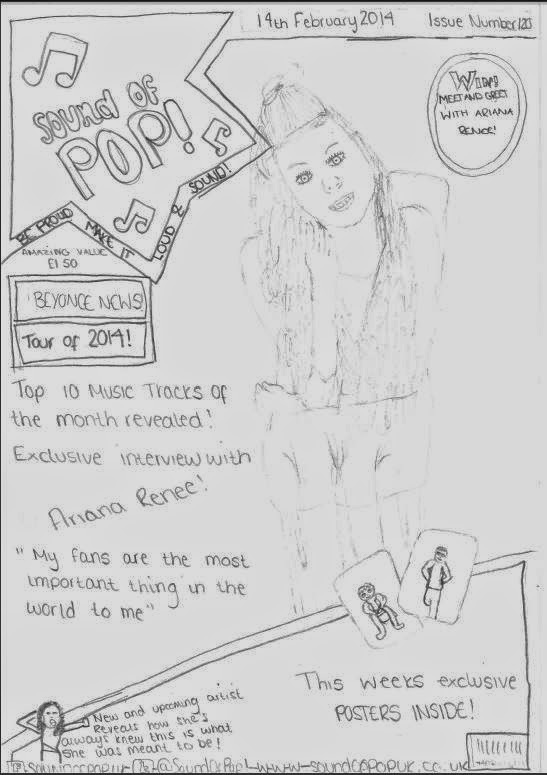 14th February 2014
Issue Number 123
Sound of
POP!
WIN!
MEET AND GREET
WITH ARIANA
RENEE!
BE PROUD MAKE IT LOUD & SOUND!
AMAZING VALUE
£1 50
BEYONCE NEWS!
Tour of 2014!
Top 10 Music Tracks of
the month revealed!
Exclusive interview with
Ariana Renee!
"My fans are the most
important thing in the
world to me"
This weeks exclusive
POSTERS INSIDE!
New and upcoming artist
Reveals how she's
always knew this is what
she was meant to be!
@SoundOfPop! www.soundofpopuk.co.uk